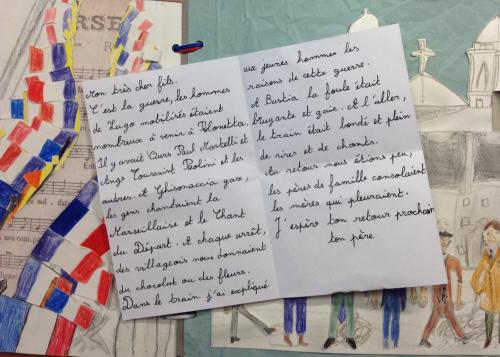 RSE
Mon très cher fils.
C'est la guerre, les hommes
de Lugo mobilisés étaient
nombreux à venir à Polonetta.
Il y avait Ours Paul Martelli et
Ange Toussaint Polini et les
autres. A Ghisonaccia gare,
les gens chantaient la
Marseillaise et le Chant
du Départ. A chaque arrêt,
des villageois nous donnaient
du chocolat ou des fleurs.
Dans le train j'ai expliqué
aux jeunes hommes les
raisons de cette guerre.
A Bastia la foule était
bruyante et gaie. A l'aller,
le train était bondé et plein
de rires et de chants.
Au retour nous étions peu,
les pères de famille consolaient
les mères qui pleuraient.
J'espère ton retour prochain
ton père